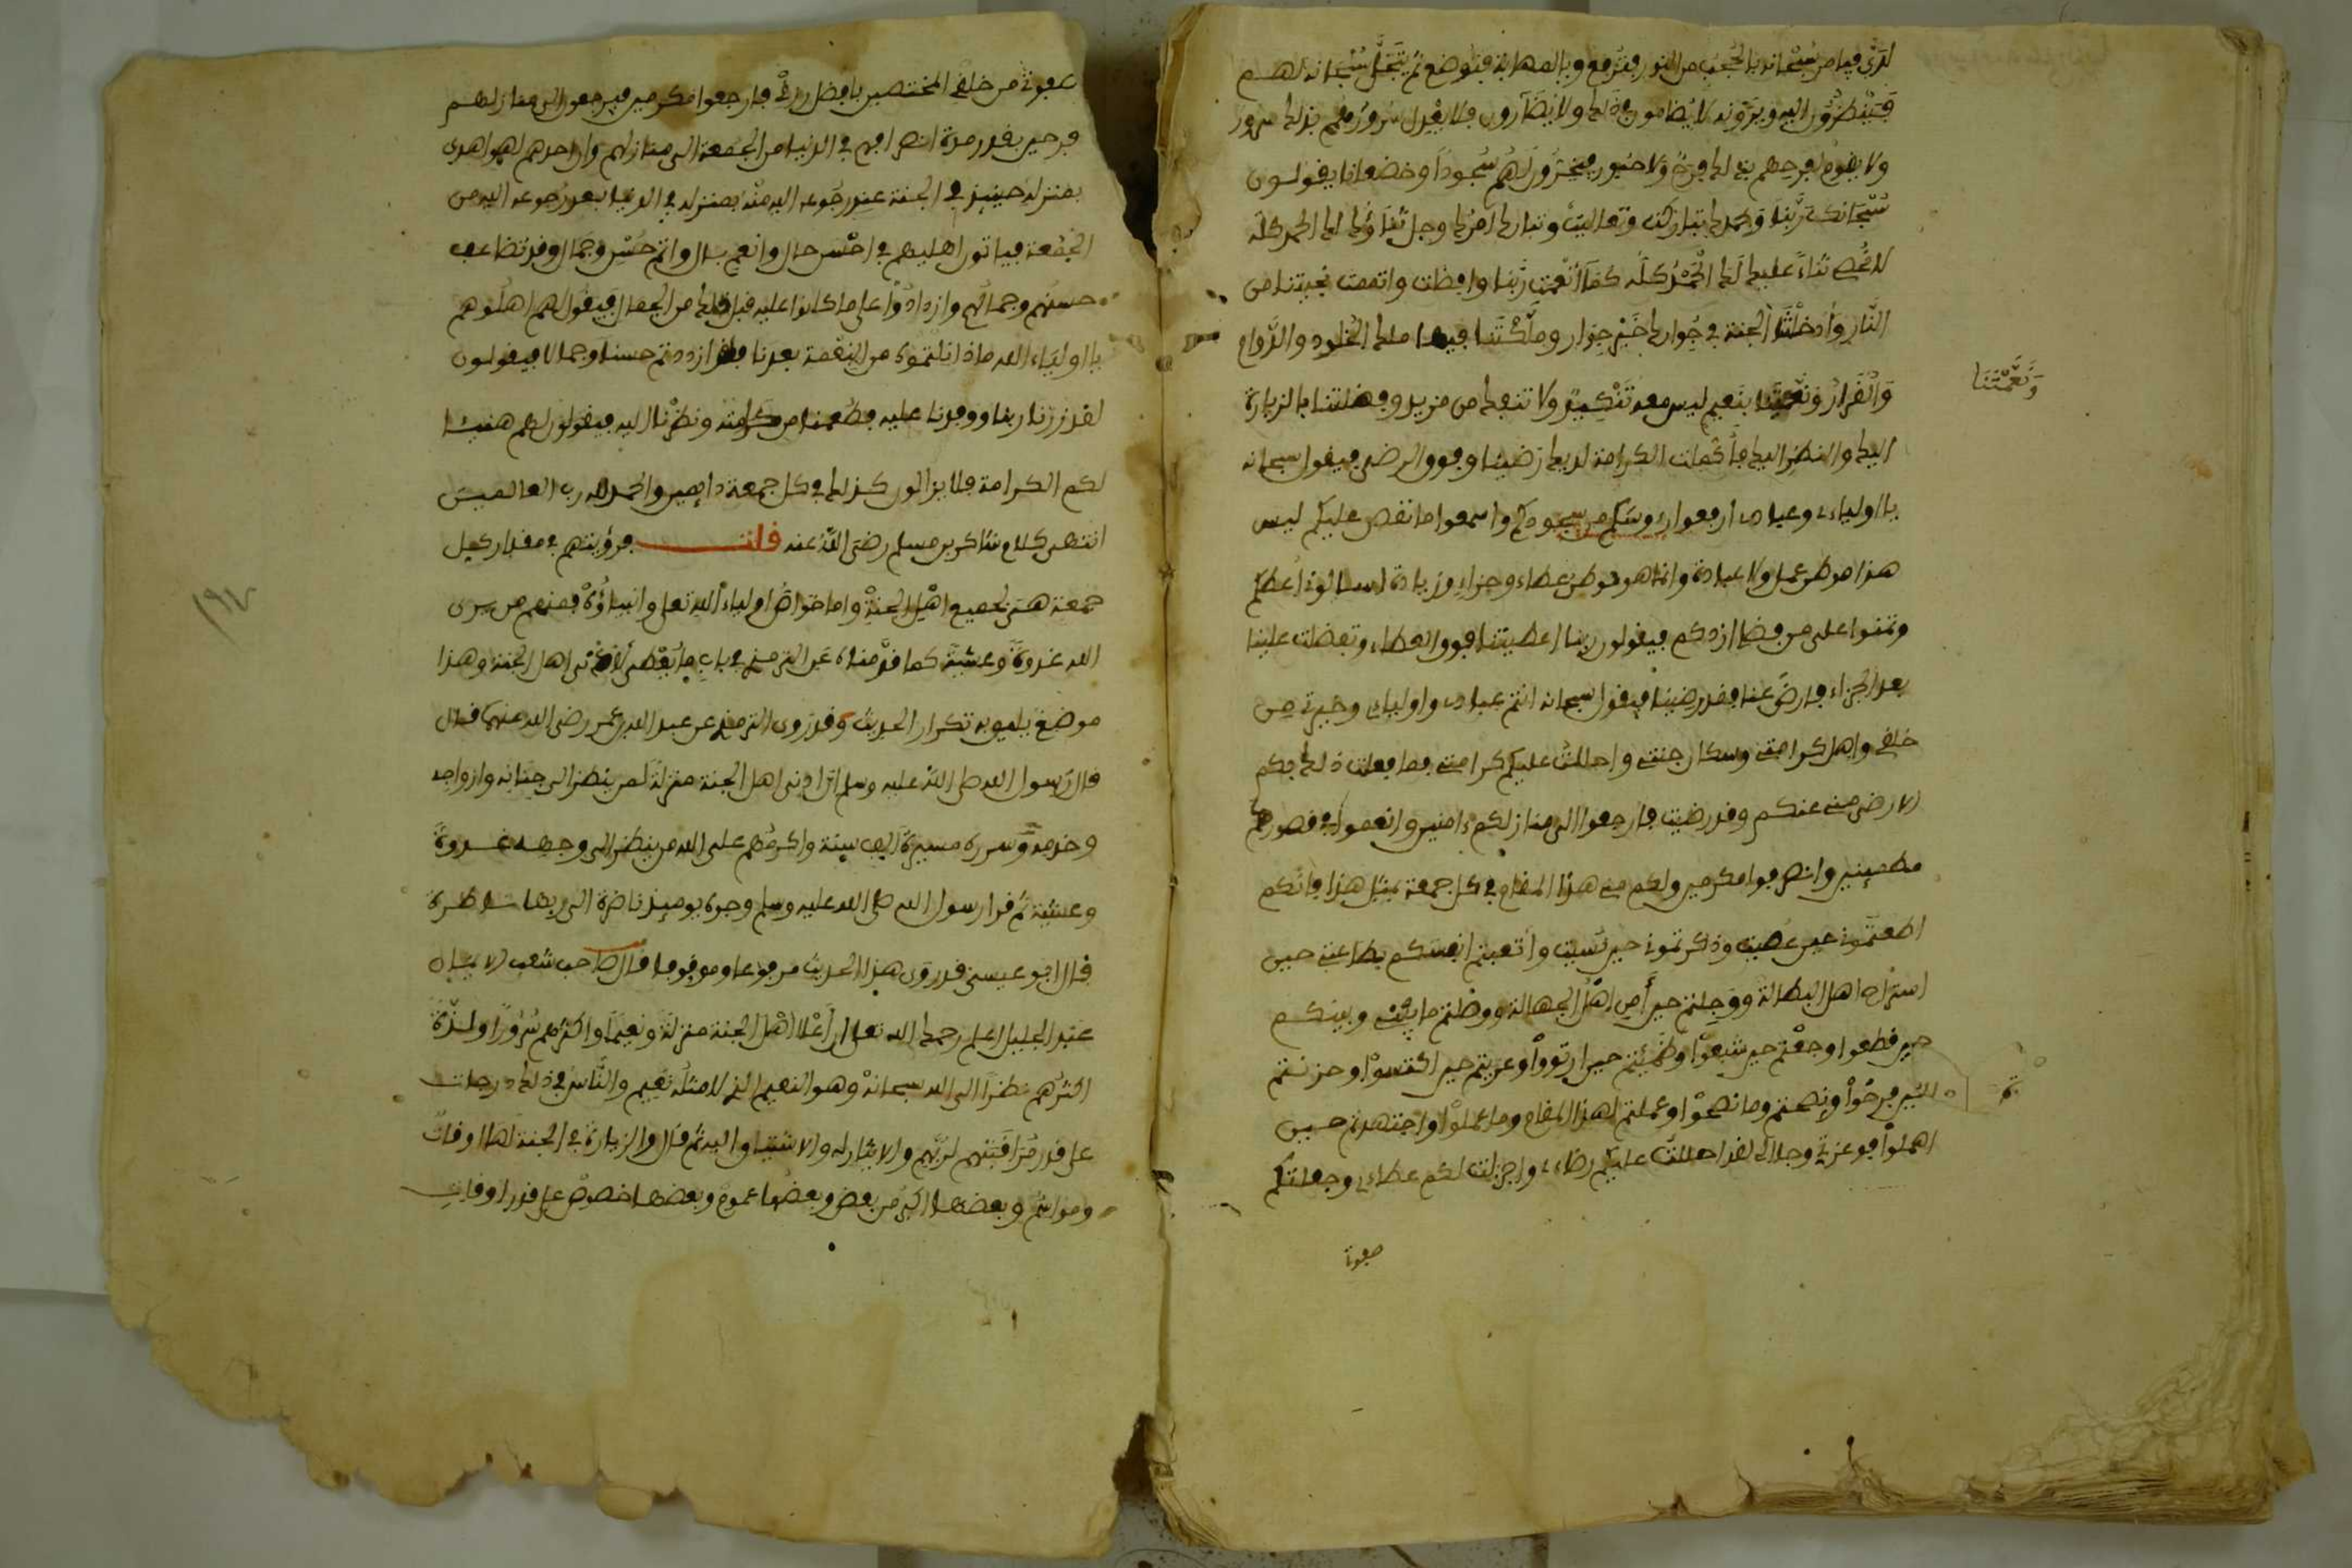 لدى فيامر سبحانه بالحجب من النور فترفع وبالمهابة فتوضع ثم يتجلى سبحانه لهم
فينظرون اليه ويرونه لا يضامون في ذلك ولا يضارون فلا يعدل سرورهم بذلك سرور
ولا يقوم لفرحهم بذلك فرح ولا حبور فيخرون لهم سجودا وخضعانا يقولون
سبحانك ربنا وبحمدك تباركت وتعاليت وتبارك امرك وجل ثناؤك لك الحمد كله
لا نحصي ثناء عليك لك الحمد كله كما انعمت ربنا وافضت واتممت نجيتنا من
النار وادخلتنا الجنة في جوارك خير جوار وملكتنا فيها ملك الخلود والدوام
والقرار ونعمتنا بنعيم ليس معه تنكيد ولا تنفك من مزيد وفضلتنا بالزيارة
ونعمتنا
اليك والنظر اليك فأكملت الكرامة لديك رضينا وفوق الرضى فيقول سبحانه
يا اولياءي وعبادي ارفعوا رءوسكم من سجودكم واسمعوا ما نقص عليكم ليس
هذا موطن عمل ولا عبادة وانما هو موطن عطاء وجزاء وزيادة اسالوني اعطكم
وتمنوا على من فضلي ازدكم فيقولون ربنا اعطيتنا فوق العطاء وتفضلت علينا
بعد الجزاء فارض عنا فقد رضينا فيقول سبحانه انتم عبادي واوليائي وخيرتي من
خلقي واهل كرامتي وسكان جنتي واحللت عليكم كرامتي فما فعلت ذلك بكم
الا رضى مني عنكم وقد رضيت فارجعوا الى منازلكم ءامنين وانعموا في قصوركم
مطمئنين وانصرفوا مكرمين ولكم مني هذا المقام في كل جمعة بمثل هذا فانكم
اطعتموني حين عصيت وذكرتموني حين نسيت واتعبتم انفسكم بطاعتي حين
استراح اهل البطالة ووجلتم حين أمن اهل الجهالة ووصلتم ما بيني وبينكم
حين قطعوا وجعتم حين شبعوا وظمئتم حين ارتووا وعريتم حين اكتسوا وحزنتم
حين فرحوا ونصحتم وما نصحوا وعملتم لهذا المقام وما عملوا واجتهدتم حين
اهملوا فوعزتي وجلالي لقد احللت عليكم رضاءي واجزلت لكم عطاءي وجعلتكم
صفوتي
صفوتي من خلقي المختصين بافضل رزقي فارجعوا مكرمين فيرجعون الى منازلهم
فرحين بقدر مدة انصرافهم في الدنيا من الجمعة الى منازلهم وان احدهم لهو اهدى
بمنزله حينئذ في الجنة عند رجوعه اليه منه بمنزله في الدنيا بعد رجوعه اليه من
الجمعة فياتون اهليهم في احسن حال وانعم بال واتم حسن وجمال وقد تضاعف
حسنهم وجمالهم وازدادوا على ما كانوا عليه قبل ذلك من الجمال فيقول لهم اهلوهم
يا اولياء الله ماذا نلتموه من النعمة بعدنا فلقد ازددتم حسنا وجمالا فيقولون
لقد زرنا ربنا ووفدنا عليه فطعمنا من كرامته ونظرنا اليه فيقولون لهم هنيئا
لكم الكرامة فلا يزالون كذلك في كل جمعة دايمين والحمد لله رب العالمين
انتهى كلام شاكر بن مسلم رضي الله عنه قلت فرؤيتهم في مقدار كل
جمعة هي لجميع اهل الجنة واما خواص اولياء الله تعلى وانبياؤه فمنهم من يرى
الله غدوة وعشية كما قدمناه عن الترمذي في باب ما يعطى لادنى اهل الجنة وهذا
موضع يليق به تكرار الحديث وقد روى الترمذي عن عبد الله بن عمر رضي الله عنهما قال
قال رسول الله صلى الله عليه وسلم ان ادنى اهل الجنة منزلة لمن ينظر الى جنانه وازواجه
وخدمه وسرره مسيرة الف سنة واكرمهم على الله من ينظر الى وجهه غدوة
وعشية ثم قرا رسول الله صلى الله عليه وسلم وجوه يوميذ ناضرة الى ربها ناظرة
قال ابو عيسى قد روى هذا الحديث مرفوعا وموقوفا قال صاحب شعب الايمان
عبد الجليل اعلم رحمك الله تعلى ان أعلا اهل الجنة منزلة ونعيما واكثرهم سرورا ولذة
اكثرهم نظرا الى الله سبحانه وهو النعيم الذي لا مثله نعيم والناس في ذلك درجات
على قدر مراقبتهم لربهم والايثار له والاشتياق اليه ثم قال والزيارة في الجنة لها اوقات
ومواسم وبعضها اكبر من بعض وبعضها عموم وبعضها خصوص على قدر اوقات